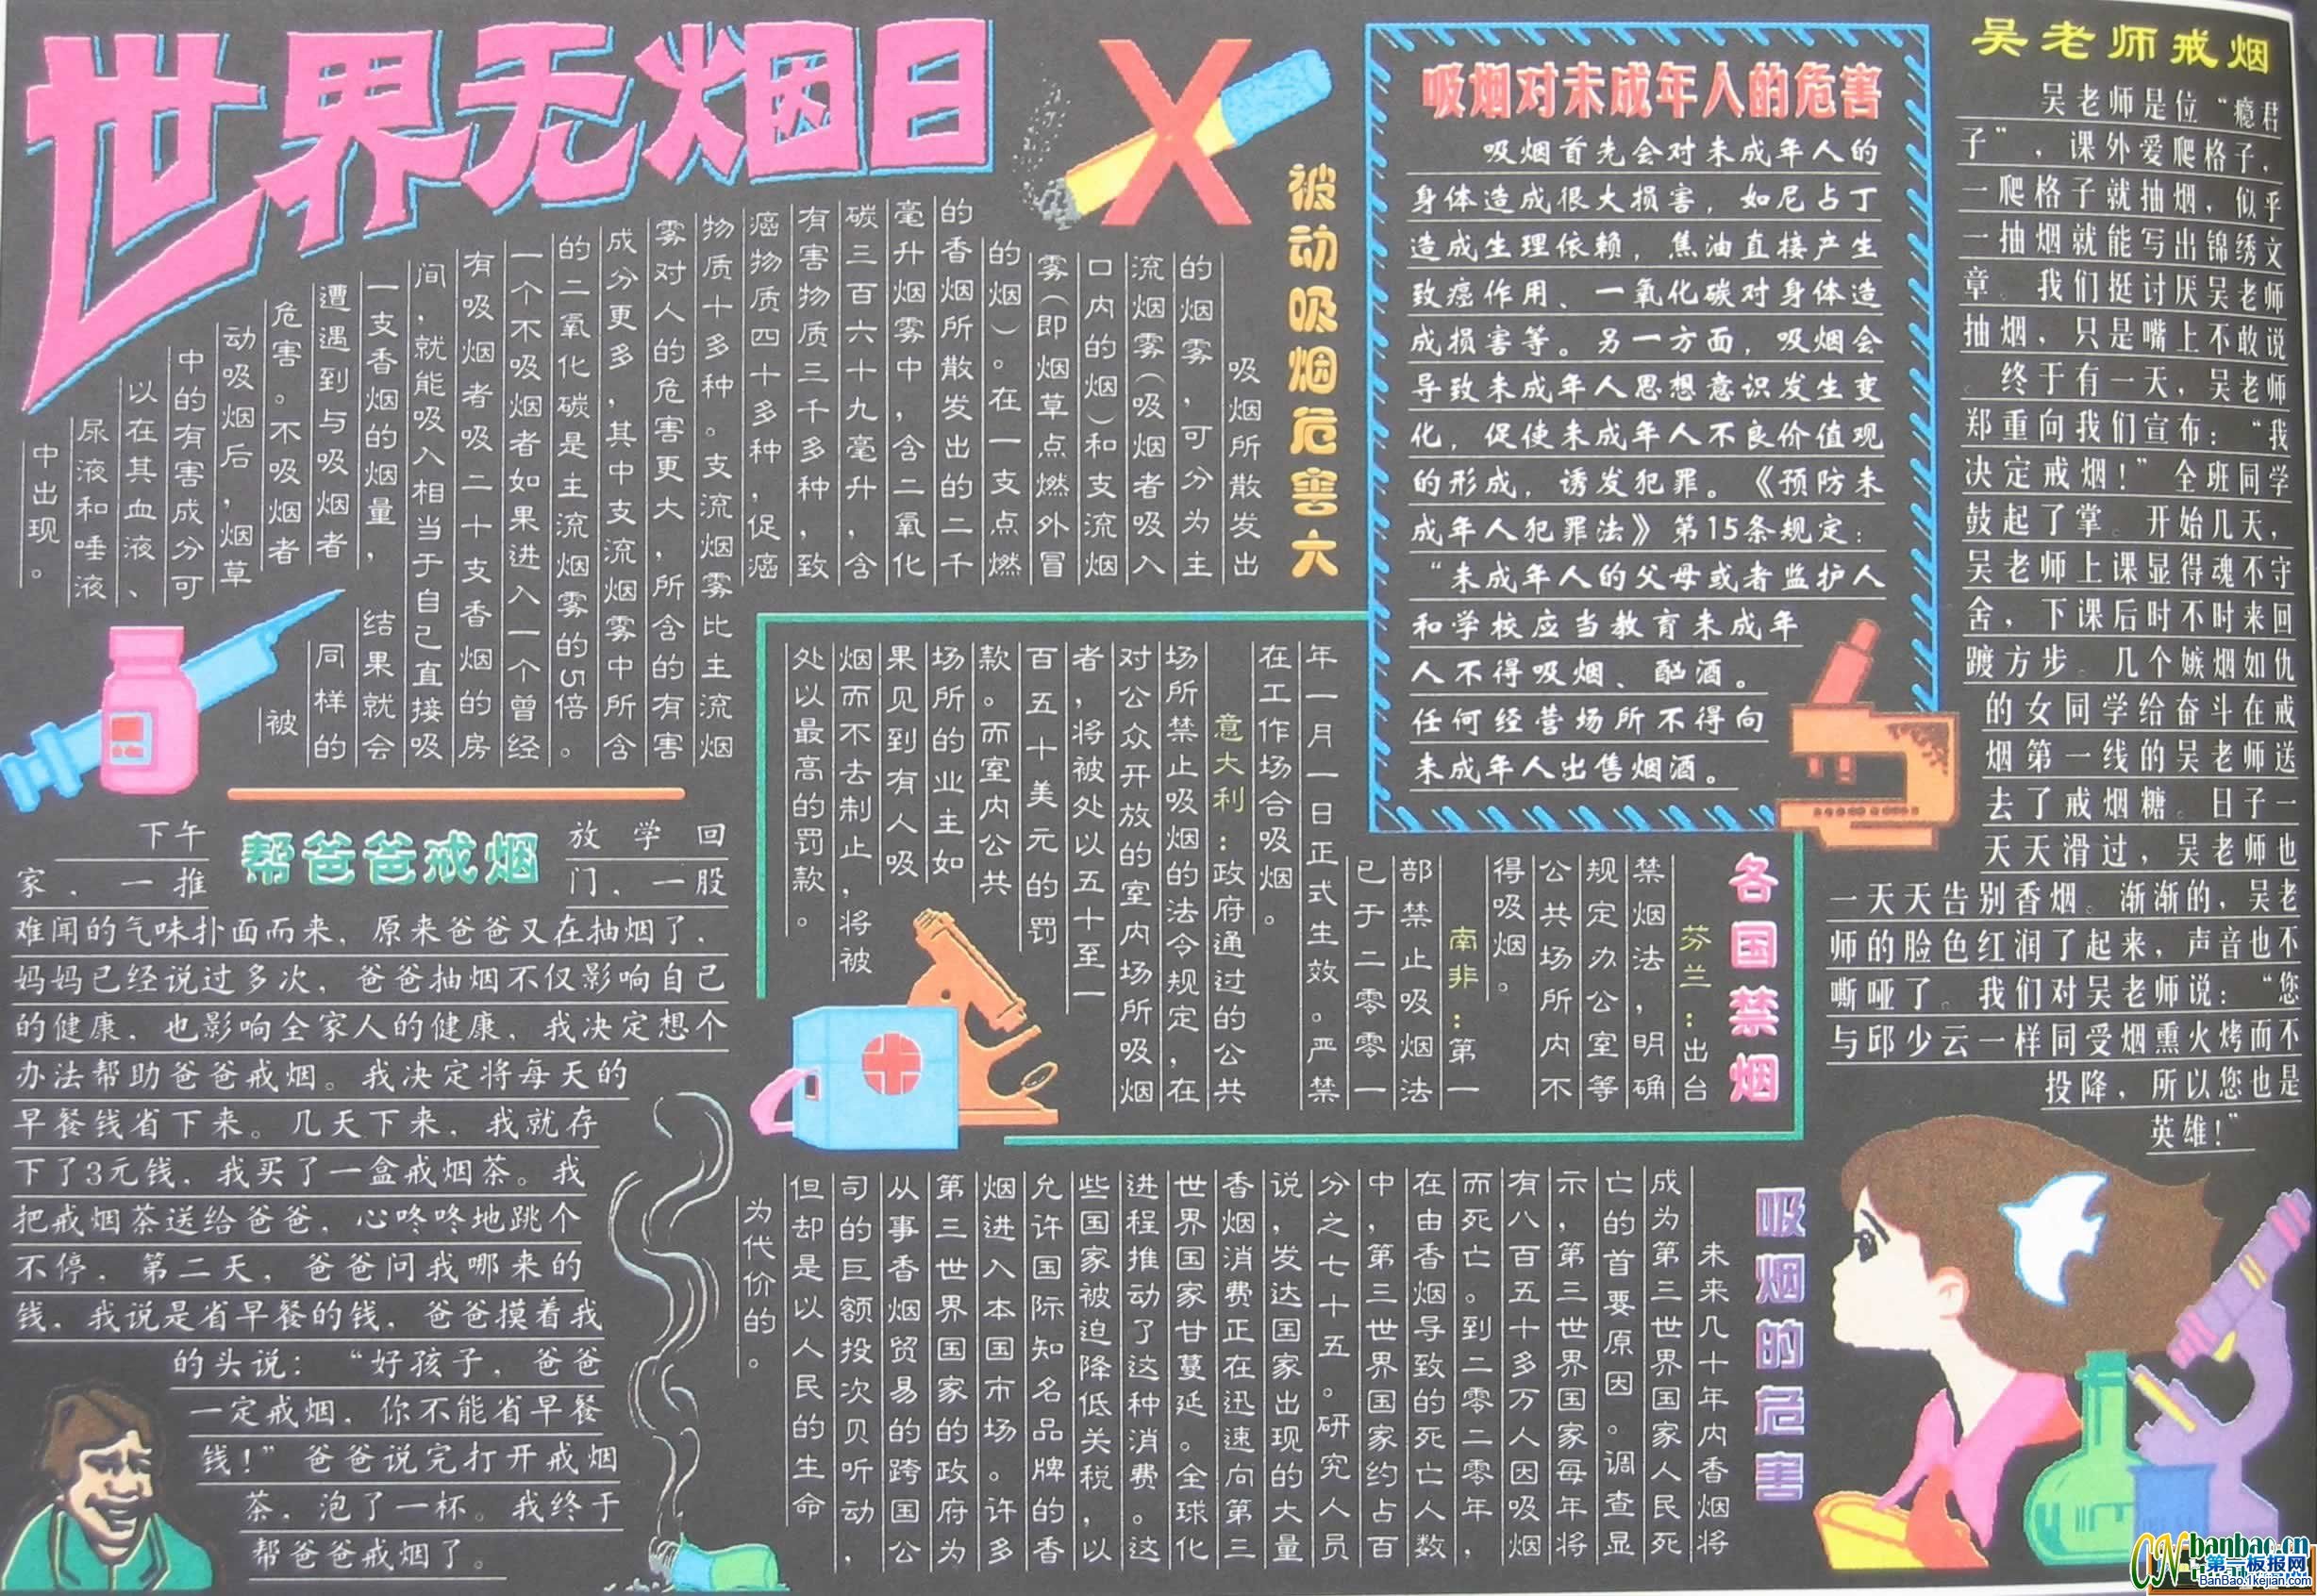 世界无烟日
被动吸烟危害大
吸烟所散发出
的烟雾，可分为主
流烟雾（吸烟者吸入
口内的烟）和支流烟
雾（即烟草点燃外冒
的烟）。在一支点燃
的香烟所散发出的二千
毫升烟雾中，含二氧化
碳三百六十九毫升，含
有害物质三千多种，致
癌物质四十多种，促癌
物质十多种。支流烟雾比主流烟
雾对人的危害更大，所含的有害
成分更多，其中支流烟雾中所含
的二氧化碳是主流烟雾的5倍。
一个不吸烟者如果进入一个曾经
有吸烟者吸二十支香烟的房
间，就能吸入相当于自己直接吸
一支香烟的烟量，结果就会
遭遇到与吸烟者同样的
危害。不吸烟者被
动吸烟后，烟草
中的有害成分可
以在其血液、
尿液和唾液
中出现。
吸烟对未成年人的危害
吸烟首先会对未成年人的
身体造成很大损害，如尼占丁
造成生理依赖，焦油直接产生
致癌作用、一氧化碳对身体造
成损害等。另一方面，吸烟会
导致未成年人思想意识发生变
化，促使未成年人不良价值观
的形成，诱发犯罪。《预防未
成年人犯罪法》第15条规定：
“未成年人的父母或者监护人
和学校应当教育未成年
人不得吸烟、酗酒。
任何经营场所不得向
未成年人出售烟酒。
吴老师戒烟
吴老师是位“瘾君
子”，课外爱爬格子，
一爬格子就抽烟，似乎
一抽烟就能写出锦绣文
章。我们挺讨厌吴老师
抽烟，只是嘴上不敢说
。终于有一天，吴老师
郑重向我们宣布：“我
决定戒烟！”全班同学
鼓起了掌。开始几天，
吴老师上课显得魂不守
舍，下课后时不时来回
踱方步。几个嫉烟如仇
的女同学给奋斗在戒
烟第一线的吴老师送
去了戒烟糖。日子一
天天滑过，吴老师也
一天天告别香烟。渐渐的，吴老
师的脸色红润了起来，声音也不
嘶哑了。我们对吴老师说：“您
与邱少云一样同受烟熏火烤而不
投降，所以您也是
英雄！”
帮爸爸戒烟
下午放学回
家，一推门，一股
难闻的气味扑面而来，原来爸爸又在抽烟了，
妈妈已经说过多次，爸爸抽烟不仅影响自己
的健康，也影响全家人的健康，我决定想个
办法帮助爸爸戒烟。我决定将每天的
早餐钱省下来。几天下来，我就存
下了3元钱，我买了一盒戒烟茶。我
把戒烟茶送给爸爸，心咚咚地跳个
不停，第二天，爸爸问我哪来的
钱，我说是省早餐的钱，爸爸摸着我
的头说：“好孩子，爸爸
一定戒烟，你不能省早餐
钱！”爸爸说完打开戒烟
茶，泡了一杯。我终于
帮爸爸戒烟了。
各国禁烟
芬兰：出台
禁烟法，明确
规定办公室等
公共场所内不
得吸烟。
南非：第一
部禁止吸烟法
已于二零零一
年一月一日正式生效。严禁
在工作场合吸烟。
意大利：政府通过的公共
场所禁止吸烟的法令规定，在
对公众开放的室内场所吸烟
者，将被处以五十至一
百五十美元的罚
款。而室内公共
场所的业主如
果见到有人吸
烟而不去制止，将被
处以最高的罚款。
吸烟的危害
未来几十年内香烟将
成为第三世界国家人民死
亡的首要原因。调查显
示，第三世界国家每年将
有八百五十多万人因吸烟
而死亡。到二零二零年，
在由香烟导致的死亡人数
中，第三世界国家约占百
分之七十五。研究人员
说，发达国家出现的大量
香烟消费正在迅速向第三
世界国家甘蔓延。全球化
进程推动了这种消费。这
些国家被迫降低关税，以
允许国际知名品牌的香
烟进入本国市场。许多
第三世界国家的政府为
从事香烟贸易的跨国公
司的巨额投次贝听动，
但却是以人民的生命
为代价的。
banbao.cn
第一板报网
BanBao.1kejian.com